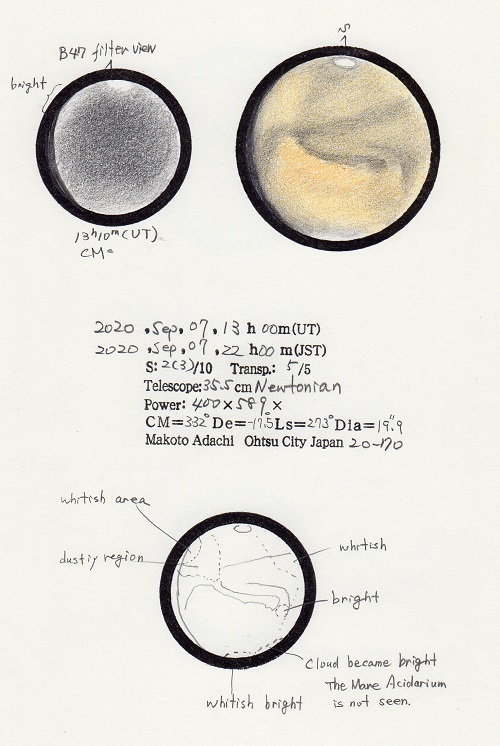 S
B47 filter view
bright
13h10m(UT)
CM=
2020 .Sep. 07 . 13 h 00m(UT)
2020 .Sep. 07 . 22 h00 m(JST)
S: 2(3)/10 Transp.: 5/5
Telescope: 35.5 cm Newtonian
Power: 400×589×
CM=332° De=-17.5 Ls=273° Dia=19".9
Makoto Adachi Ohtsu City Japan 20-170
whitish area
dustiy region
whitish
bright
Cloud became bright
The Mare Acidarium
is not seen.
whitish bright